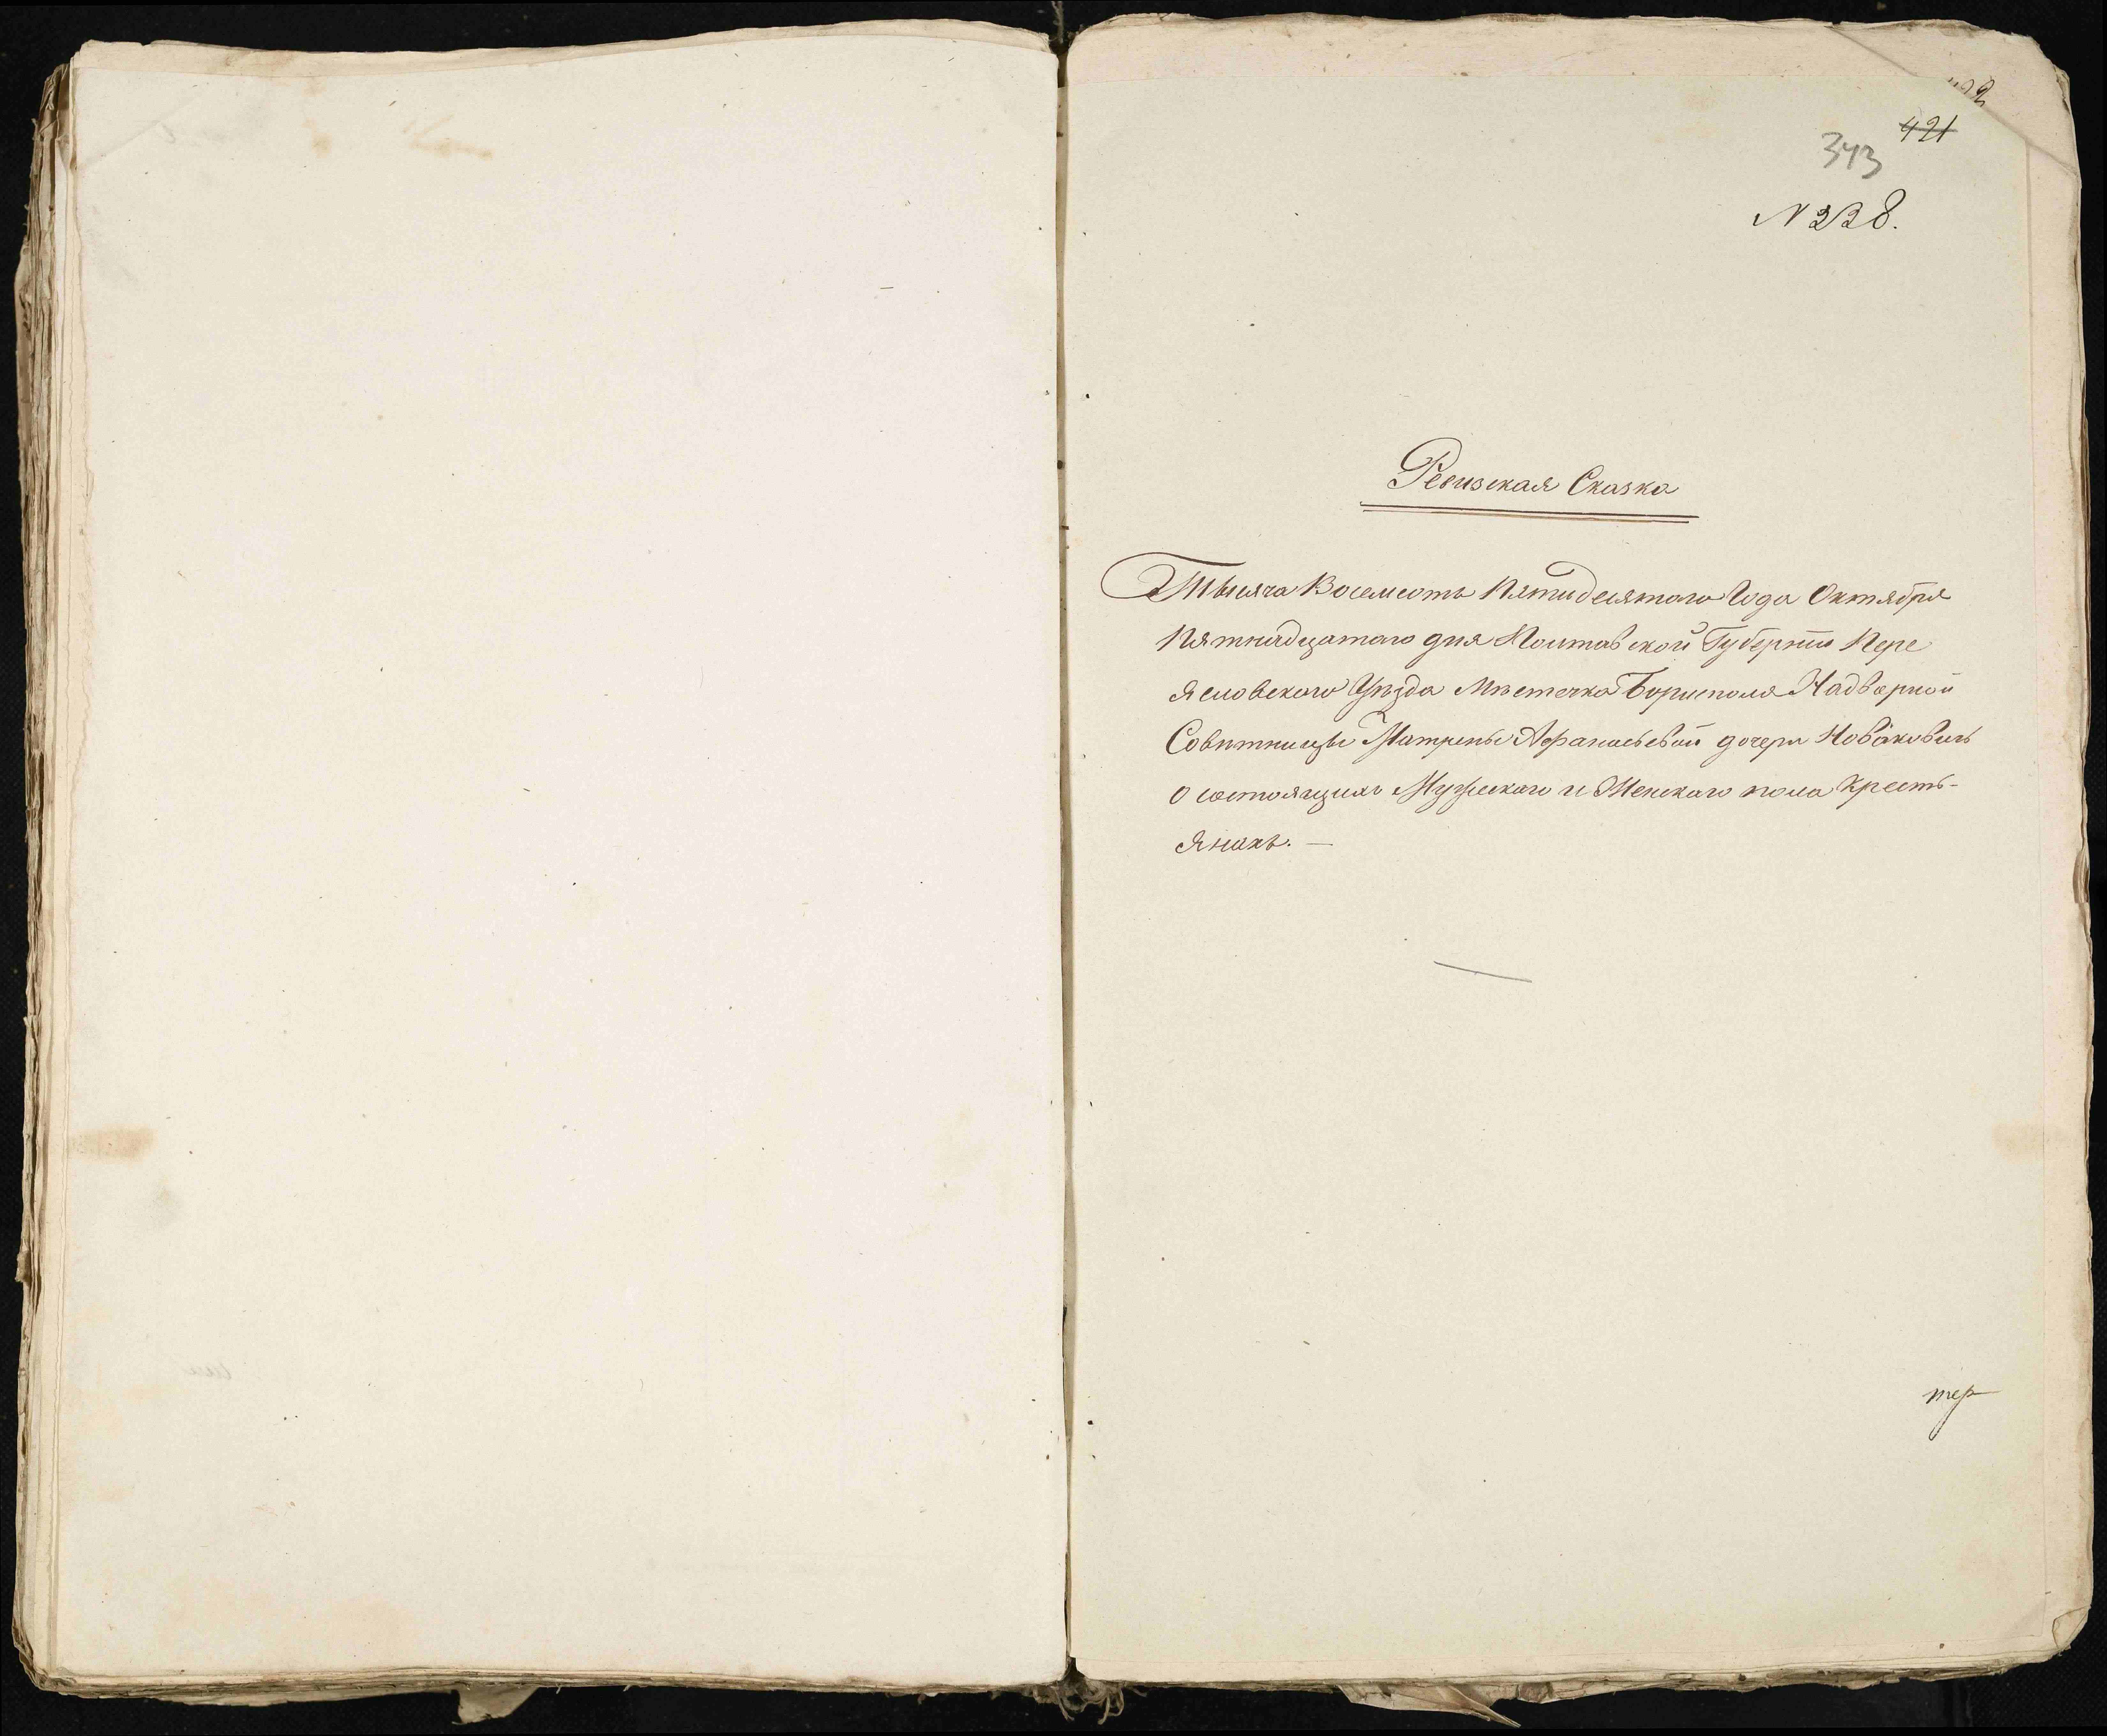 421
343
N 238.
Ревизская Сказка
Тысяча Восемсотъ Пятидесятого Года Октября
Пятнадцатаго дня Полтавской Губернiи Пере
яславскаго Уѣзда Мѣстечка Борисполя Надворной
Совѣтницы Матрены Афанасьевой дочери Новаковичь
о состоящихъ Мужескаго и Женскаго пола Кресть-
янахъ. —